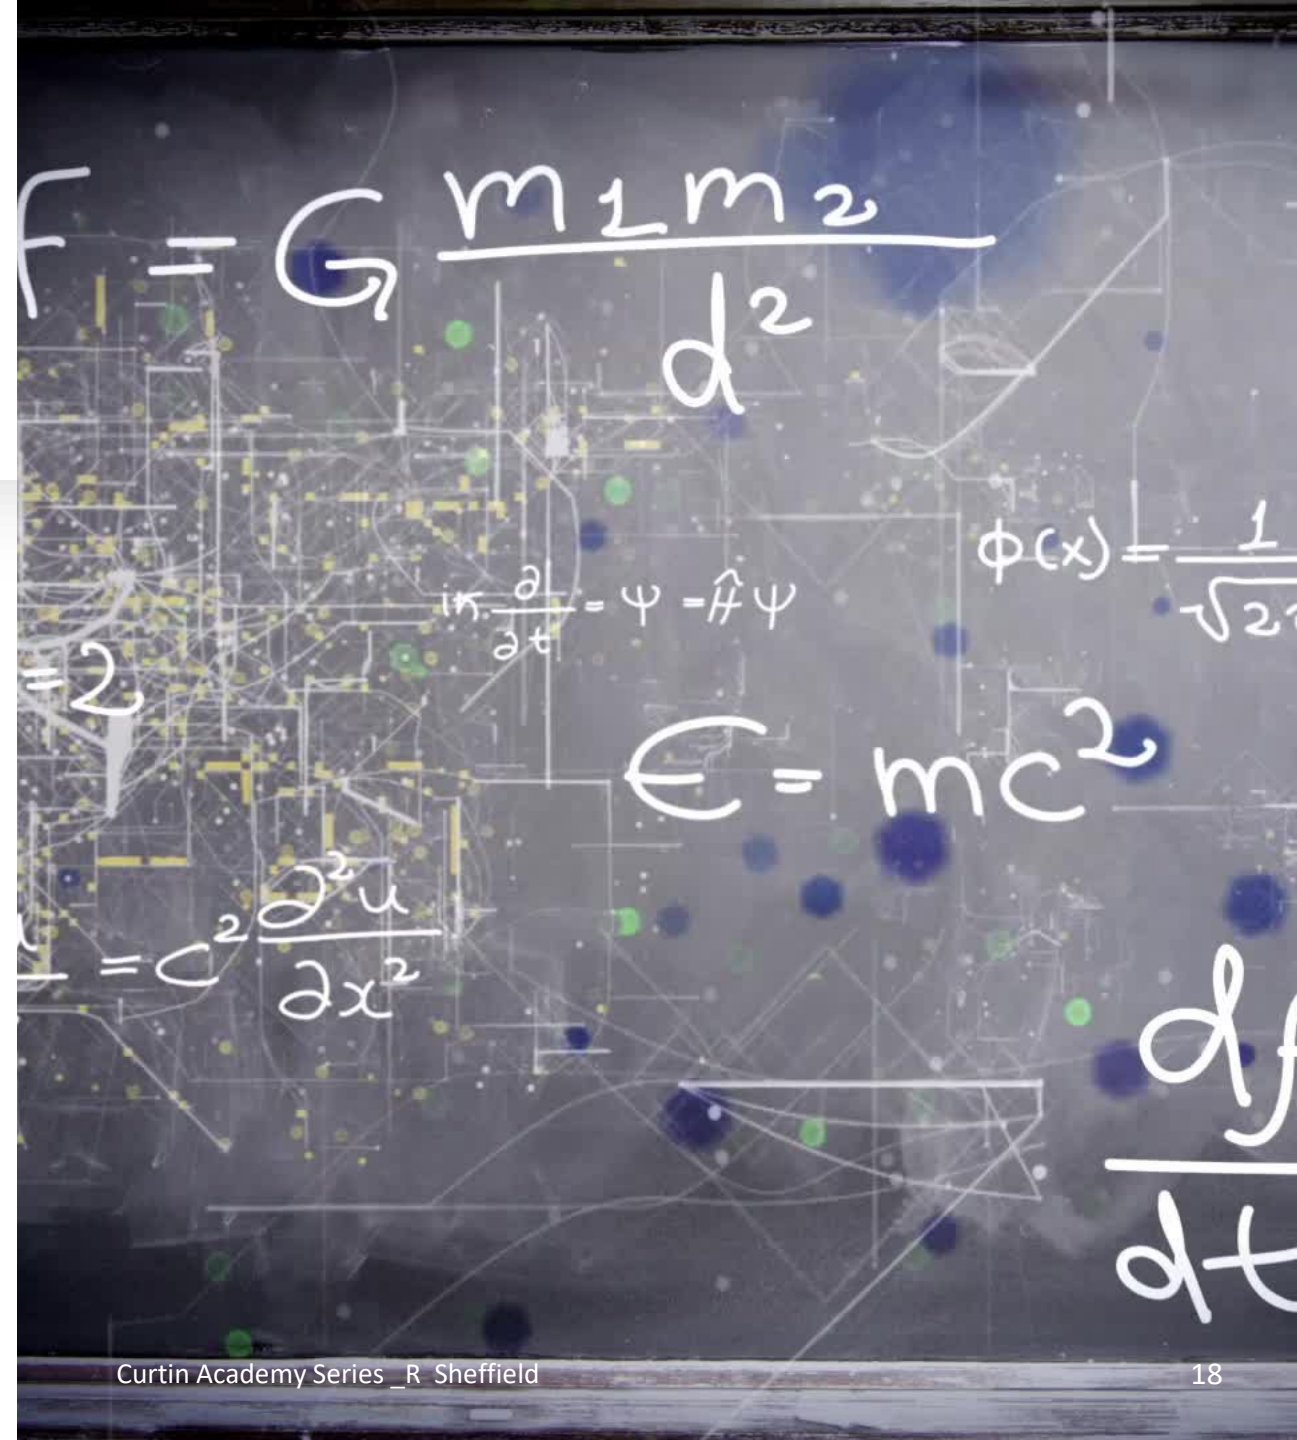 F = G m1 m2 / d²
iħ ∂/∂t = Ψ = Ĥ Ψ
φ(x) = 1 / √2
= 2
E = mc²
= c² ∂²u / ∂x²
df / dt
Curtin Academy Series _R Sheffield
18